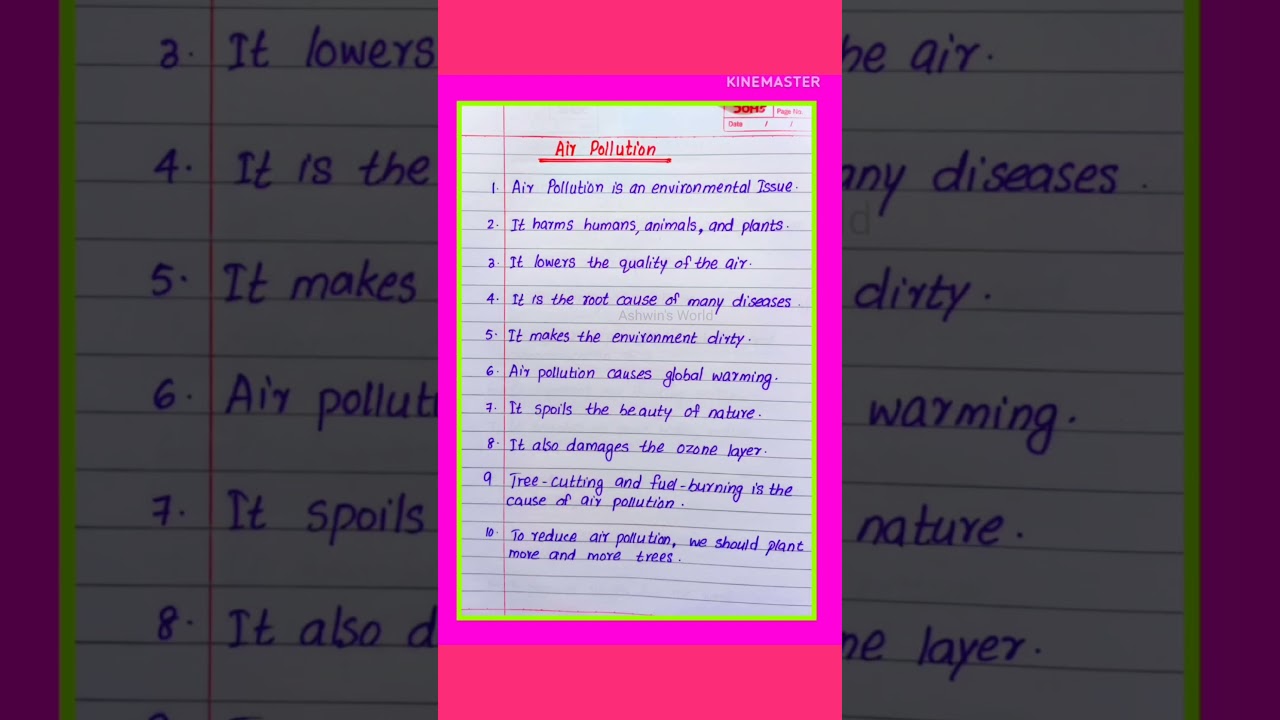 KINEMASTER
Page No.
Date / /
Air Pollution
1. Air Pollution is an environmental Issue.
2. It harms humans, animals, and plants.
3. It lowers the quality of the air.
4. It is the root cause of many diseases.
Ashwin's World
5. It makes the environment dirty.
6. Air pollution causes global warming.
7. It spoils the beauty of nature.
8. It also damages the ozone layer.
9 Tree-cutting and fuel-burning is the
cause of air pollution.
10. To reduce air pollution, we should plant
more and more trees.
3. It lowers
he air.
4. It is the
any diseases.
d
5. It makes
dirty.
6. Air polluti
warming.
7. It spoils
nature.
8. It also d
ne layer.